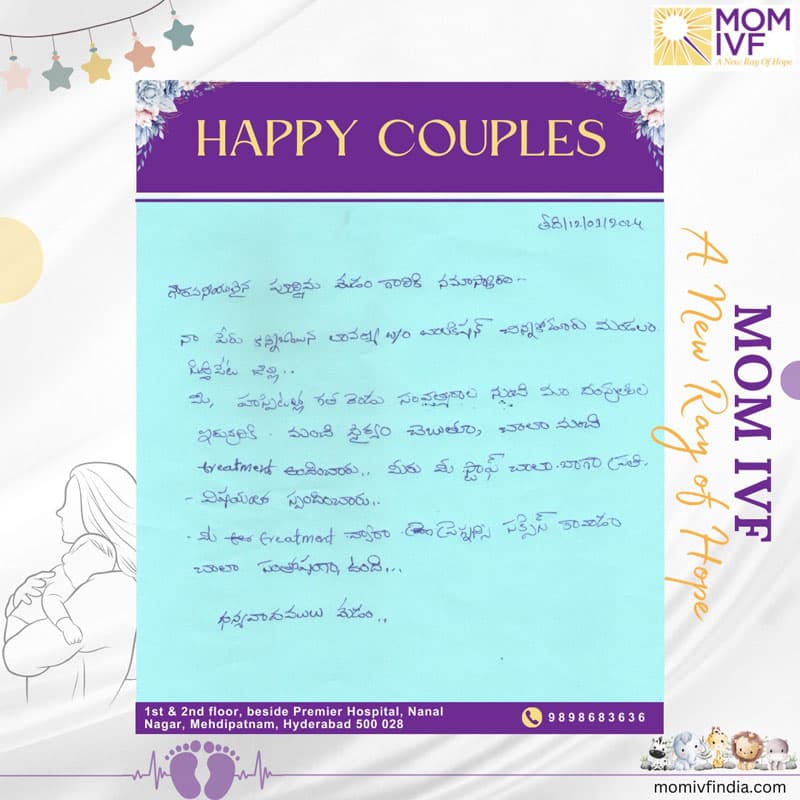 MOM
IVF
A New Ray Of Hope
HAPPY COUPLES
తేది/12/01/2024
గౌరవనీయులైన పూర్ణిమ మేడం గారికి నమస్కారం..
నా పేరు లావణ్య w/o బాలకిషన్ చిన్నకోడూరు మండలం
సిద్దిపేట జిల్లా..
మీ, హాస్పిటల్ల గత రెండు సంవత్సరాల నుండి మా దంపతుల
ఇరువురికి. మంచి ధైర్యం చెబుతూ, చాలా మంచి
treatment అందించారు.. మీరు మీ స్టాఫ్ చాలా బాగా ప్రతి
- విషయంలో స్పందించారు..
. మీ treatment ద్వారా ప్రెగ్నెన్సి సక్సెస్ కావడం
చాలా సంతోషంగా ఉంది...
ధన్యవాదములు మేడం..
1st & 2nd floor, beside Premier Hospital, Nanal
Nagar, Mehdipatnam, Hyderabad 500 028
9898683636
MOM IVF
A New Ray of Hope
momivfindia.com